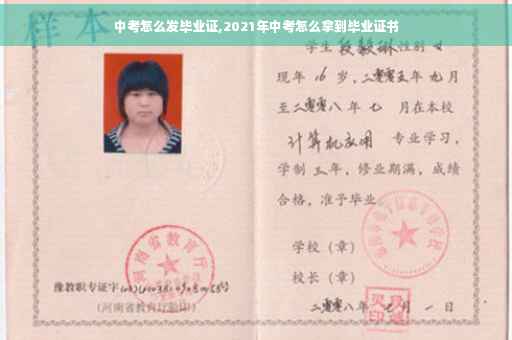 中考怎么发毕业证,2021年中考怎么拿到毕业证书
样本
学生段毅琳性别女
现年16岁，二零零五年九月
至二零零八年七月在本校
计算机应用 专业学习，
学制三年，修业期满，成绩
合格，准予毕业
学校（章）
校长（章）
二零零八年七月一日
河南省教育厅
豫教职专证字
（河南省教育厅验印）